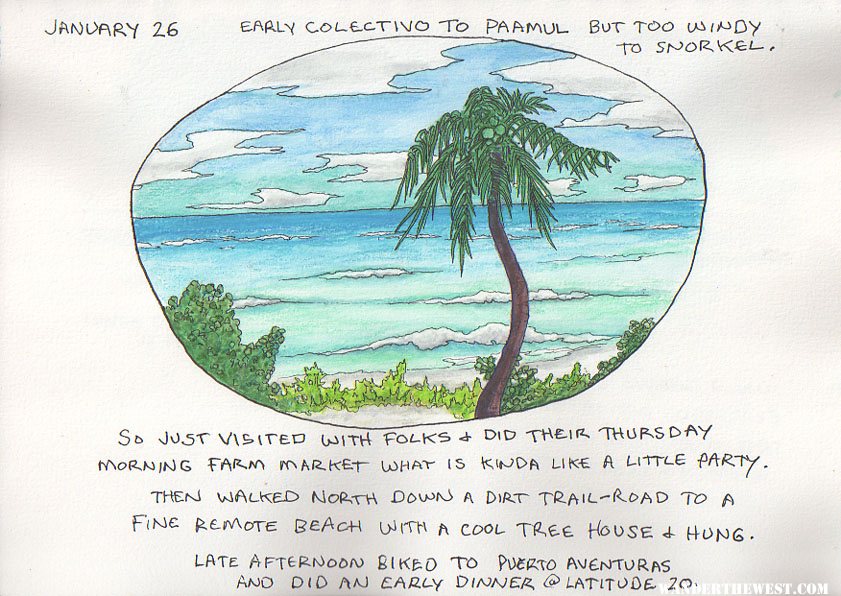 JANUARY 26 EARLY COLECTIVO TO PAAMUL BUT TOO WINDY
TO SNORKEL.
SO JUST VISITED WITH FOLKS & DID THEIR THURSDAY
MORNING FARM MARKET WHAT IS KINDA LIKE A LITTLE PARTY.
THEN WALKED NORTH DOWN A DIRT TRAIL-ROAD TO A
FINE REMOTE BEACH WITH A COOL TREE HOUSE & HUNG.
LATE AFTERNOON BIKED TO PUERTO AVENTURAS
AND DID AN EARLY DINNER @ LATITUDE 20.
WANDERTHEWEST.COM